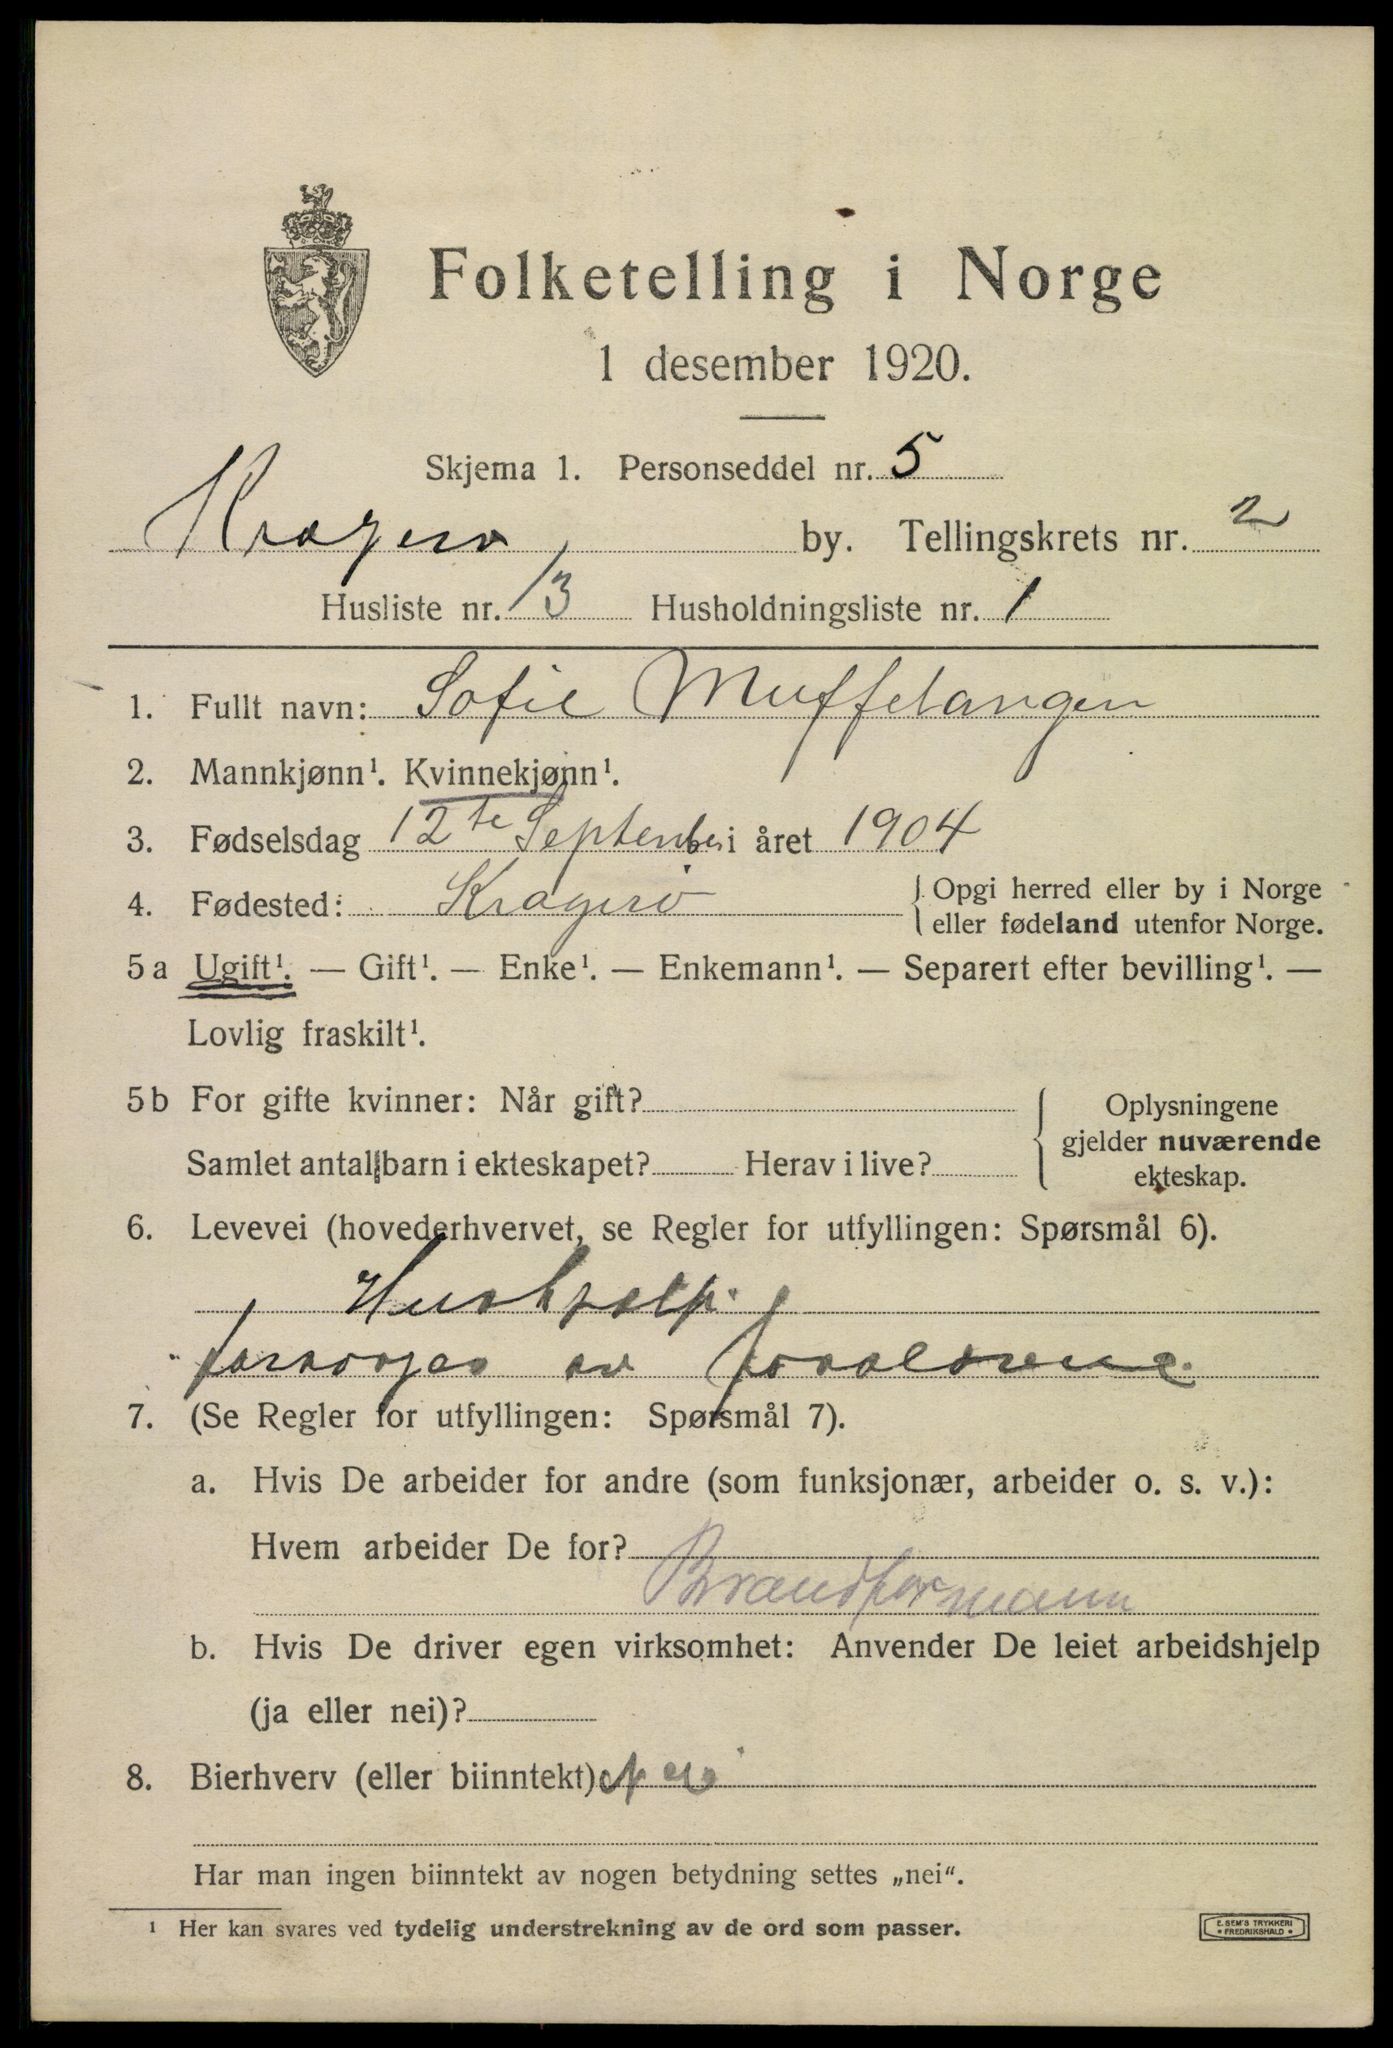 Folketelling i Norge
1 desember 1920.
Skjema 1. Personseddel nr. 5
Kragerø by. Tellingskrets nr. 2
Husliste nr. 13 Husholdningsliste nr. 1
1. Fullt navn: Sofie Muffetangen
2. Mannkjønn¹. Kvinnekjønn¹.
3. Fødselsdag 12te September i året 1904
4. Fødested: Kragerø { Opgi herred eller by i Norge
eller fødeland utenfor Norge.
5a Ugift¹. — Gift¹. — Enke¹. — Enkemann¹. — Separert efter bevilling¹. —
Lovlig fraskilt¹.
5b For gifte kvinner: Når gift?
Samlet antal barn i ekteskapet? Herav i live?
Oplysningene
gjelder nuværende
ekteskap.
6. Levevei (hovederhvervet, se Regler for utfyllingen: Spørsmål 6).
Hushjelp.
forsørges av forældrene.
7. (Se Regler for utfyllingen: Spørsmål 7).
a. Hvis De arbeider for andre (som funksjonær, arbeider o. s. v.):
Hvem arbeider De for?
Brandformann
b. Hvis De driver egen virksomhet: Anvender De leiet arbeidshjelp
(ja eller nei)?
8. Bierhverv (eller biinntekt) Nei
Har man ingen biinntekt av nogen betydning settes „nei“.
¹ Her kan svares ved tydelig understrekning av de ord som passer.
E. SEM'S TRYKKERI
• FREDRIKSHALD •